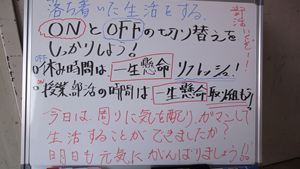 落ち着いた生活をする。
ONとOFFの切り替えを
しっかりしよう!
OFF
休み時間は、一生懸命リフレッシュ!
ON
授業、部活の時間は一生懸命取り組もう
今日は、周りに気を配り、ガマンして
生活することができましたか?
明日も元気にがんばりましょう!!